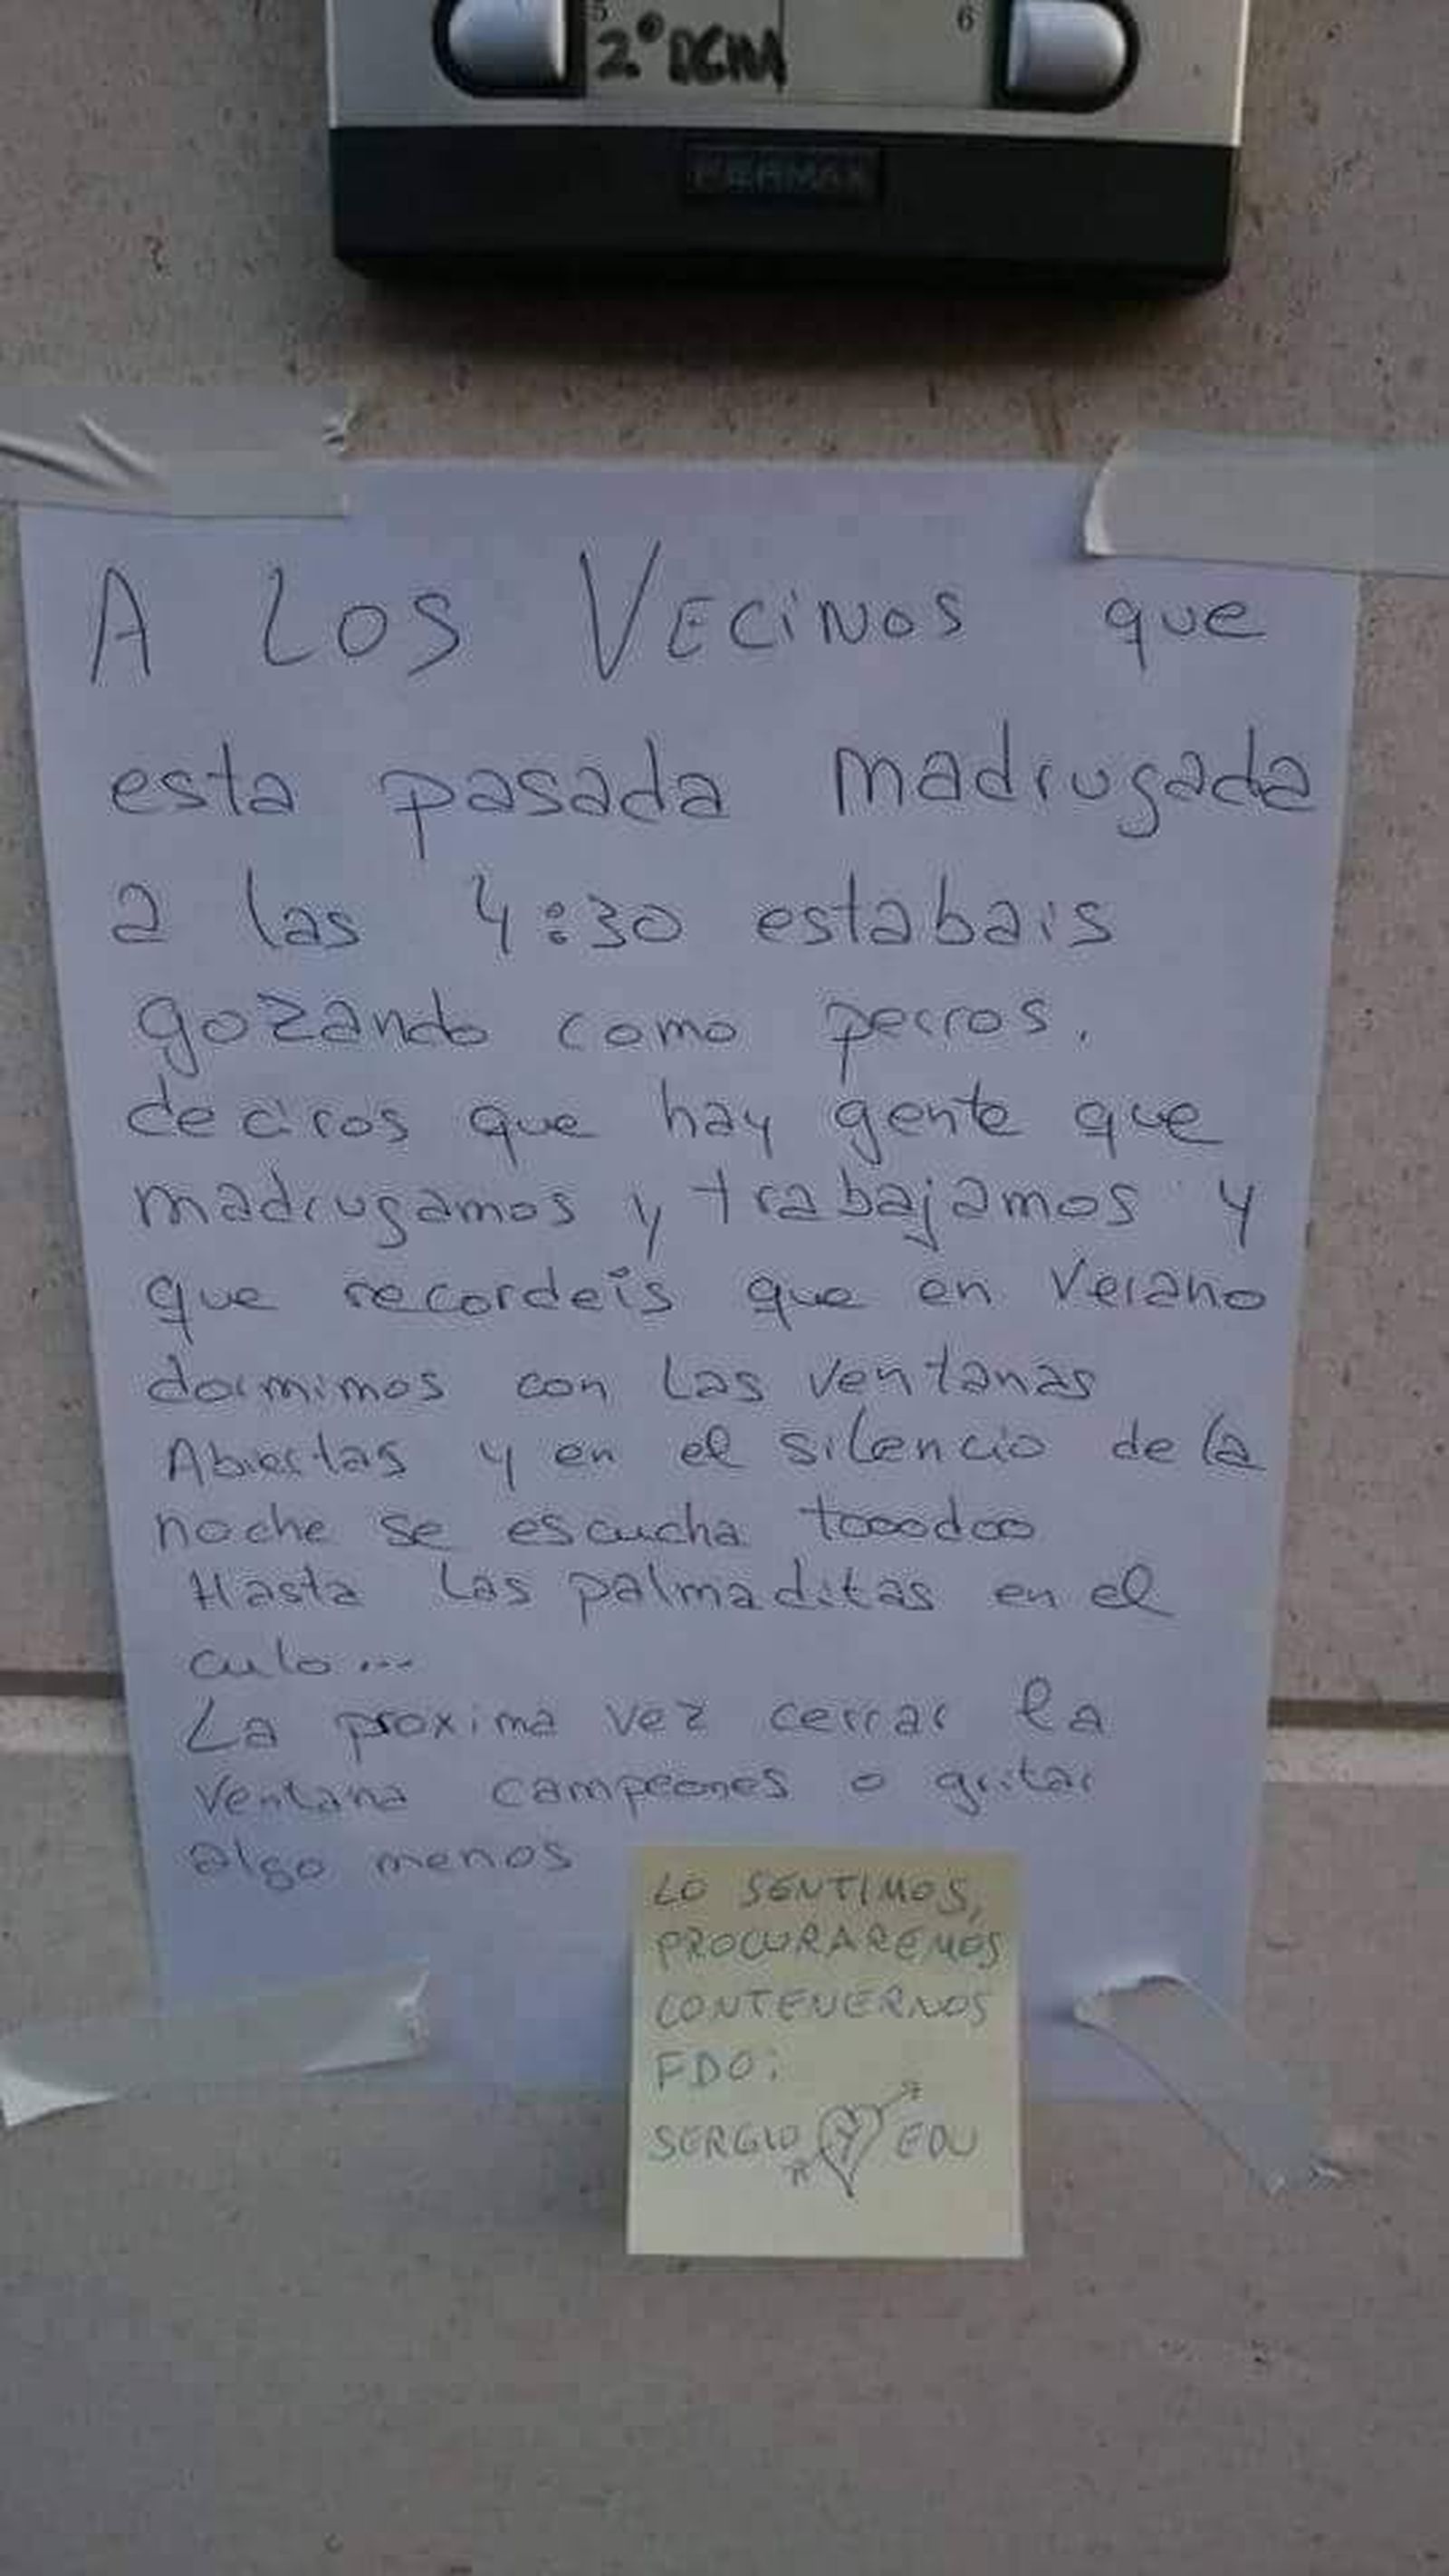 5
2º DCHA
6
FERMAX
A LOS VECiNOS que
esta pasada madrugada
a las 4:30 estabais
gozando como perros.
deciros que hay gente que
madrugamos y trabajamos y
que recordeis que en Verano
dormimos con las ventanas
Abiertas y en el silencio de la
noche se escucha tooodoo
Hasta las palmaditas en el
culo...
La proxima vez cerrar la
Ventana campeones o gritar
algo menos
LO SENTIMOS,
PROCURAREMOS
CONTENERNOS
FDO:
SERGIO Y EDU